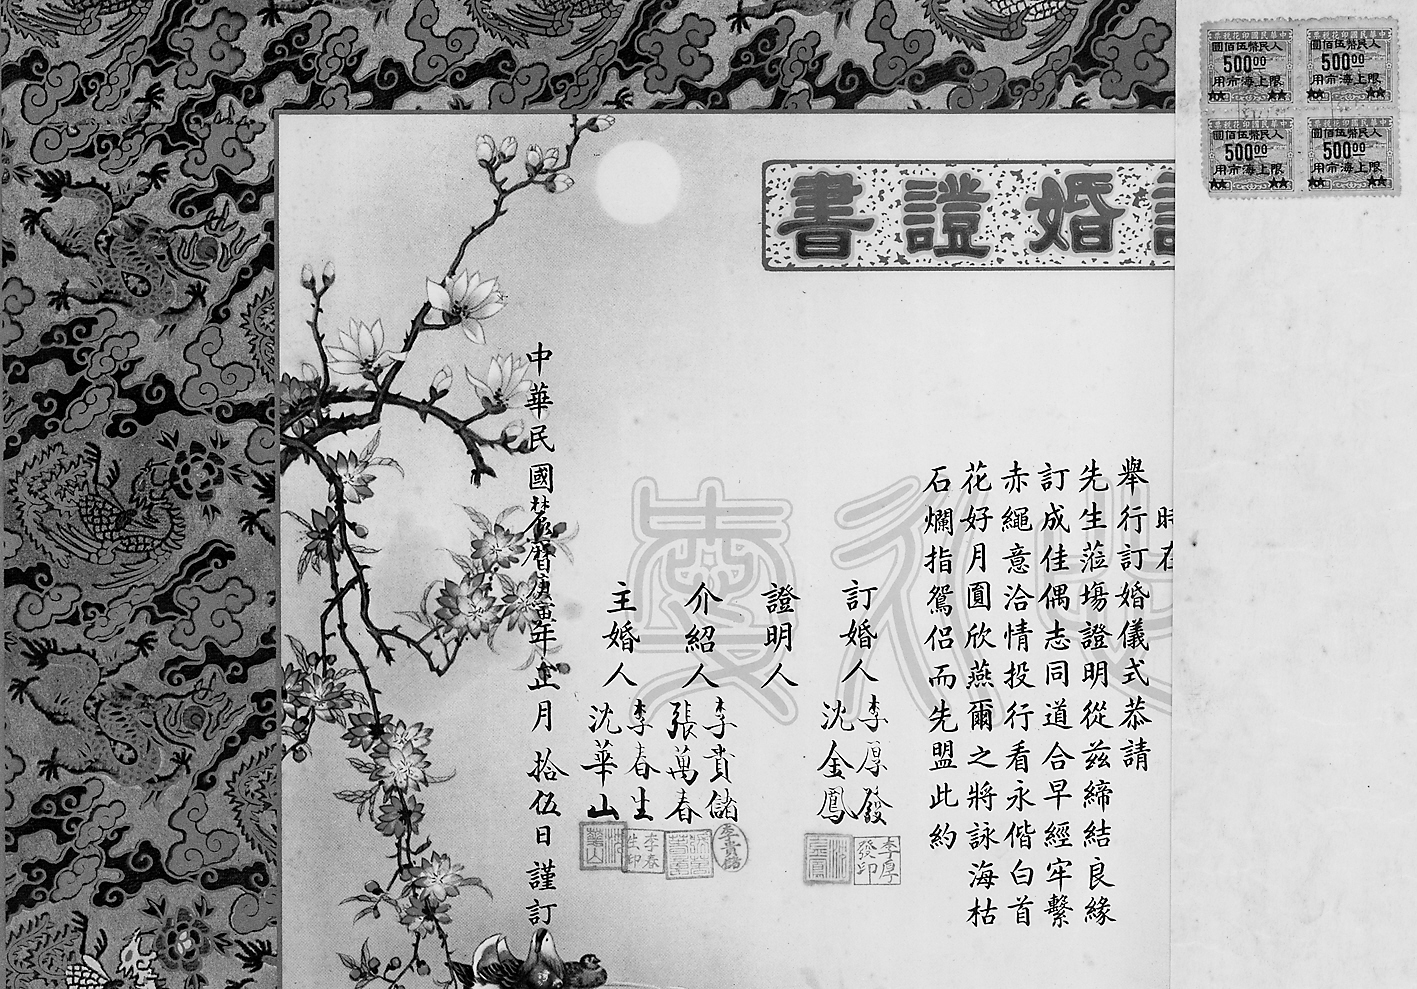 中華民國印花稅票
人民幣伍佰圓
500.00
限上海市用
中華民國印花稅票
人民幣伍佰圓
500.00
限上海市用
中華民國印花稅票
人民幣伍佰圓
500.00
限上海市用
中華民國印花稅票
人民幣伍佰圓
500.00
限上海市用
婚證書
時在
舉行訂婚儀式恭請
先生蒞塲證明從茲締結良緣
訂成佳偶志同道合早經牢繫
赤繩意洽情投行看永偕白首
花好月圓欣燕爾之將詠海枯
石爛指鴛侶而先盟此約
訂婚人
李厚發
沈金鳳
李厚發印
證明人
介紹人
李貴儲
張萬春
主婚人
李春生
沈華山
李春生印
沈華山
中華民國農曆庚寅年正月拾伍日謹訂